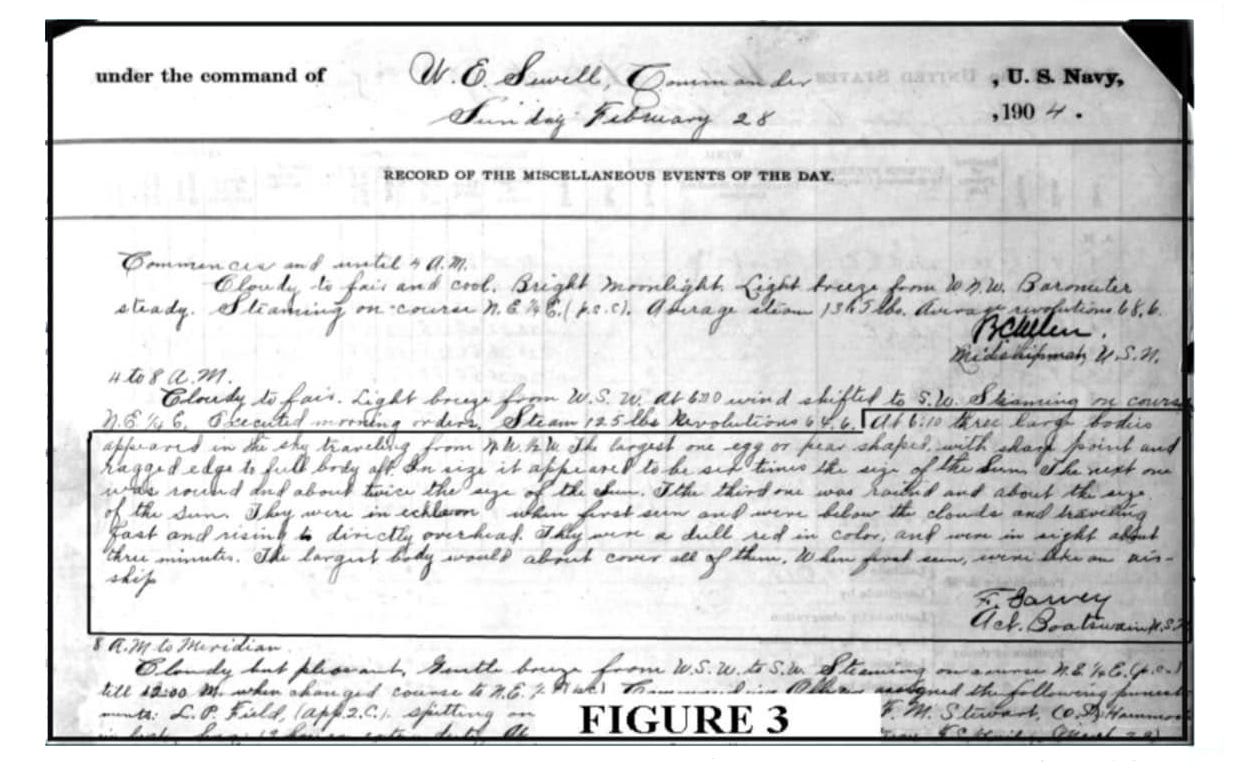 under the command of W. E. Sewell, Commander , U. S. Navy,
Sunday February 28 , 190 4 .
RECORD OF THE MISCELLANEOUS EVENTS OF THE DAY.
Commences and until 4 A.M.
Cloudy to fair and cool. Bright moonlight. Light breeze from W.N.W. Barometer
steady. Steaming on course N.E. ¼ E. (p.s.c). Average steam lbs. Average revolutions 68.6.
Midshipman, U.S.N.
4 to 8 A.M.
Cloudy to fair. Light breeze from W.S.W. At wind shifted to S.W. Steaming on course
N.E. ¼ E. Executed morning orders. Steam 125 lbs Revolutions 64.6. At 6:10 three large bodies
appeared in the sky traveling from N.W. x W. The largest one egg or pear shaped, with sharp point and
ragged edge to full body aft. In size it appeared to be six times the size of the Sun. The next one
was round and about twice the size of the Sun. The third one was round and about the size
of the Sun. They were in echleon when first seen and were below the clouds and traveling
fast and rising to directly overhead. They were a dull red in color, and were in sight about
three minutes. The largest body would about cover all of them. When first seen, were like an air-
ship
F. Garvey
Act. Boatswain U.S.N.
8 A.M to Meridian.
Cloudy but pleasant. Gentle breeze from W.S.W. to S.W. Steaming on course N.E. ¼ E. (p.c.)
till 12:00 M. when changed course to N.E. Commanding Officer assigned the following punish-
ments: L. P. Field, (App. 2.C.) spitting on F. M. Stewart,
FIGURE 3